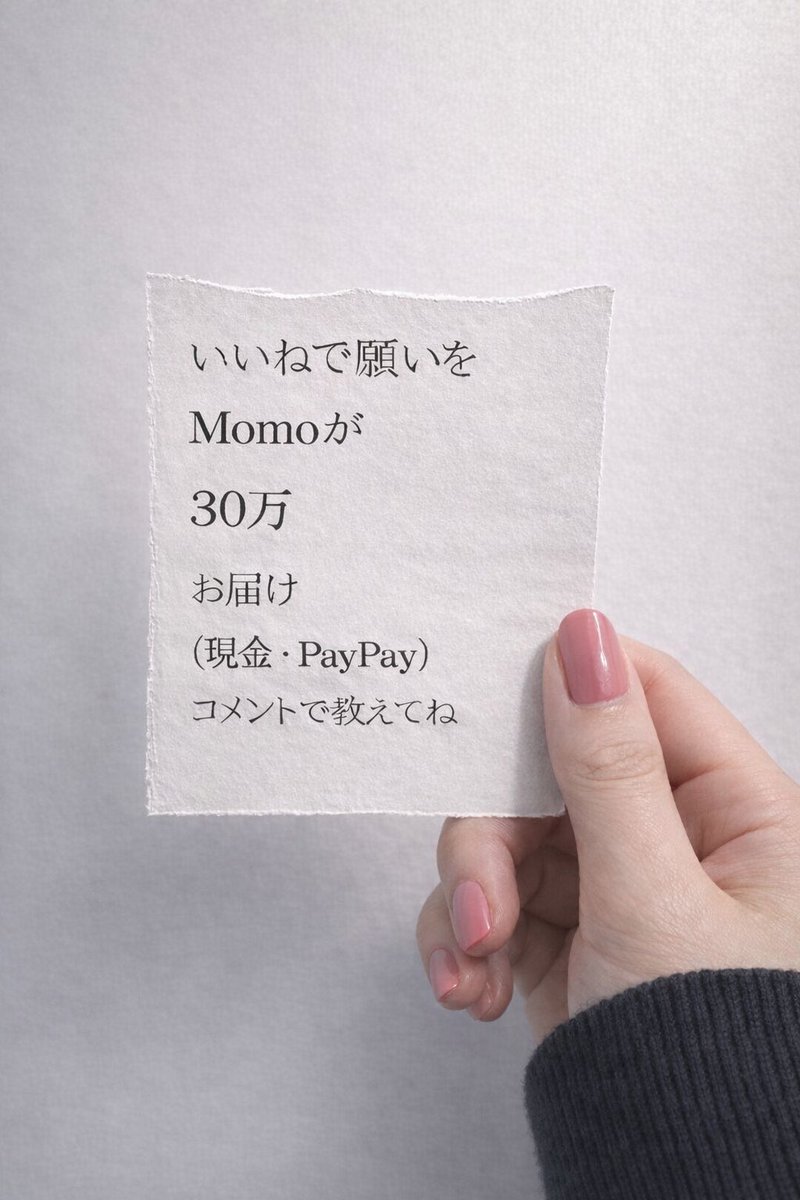 いいねで願いを
Momoが
30万
お届け
(現金・PayPay)
コメントで教えてね